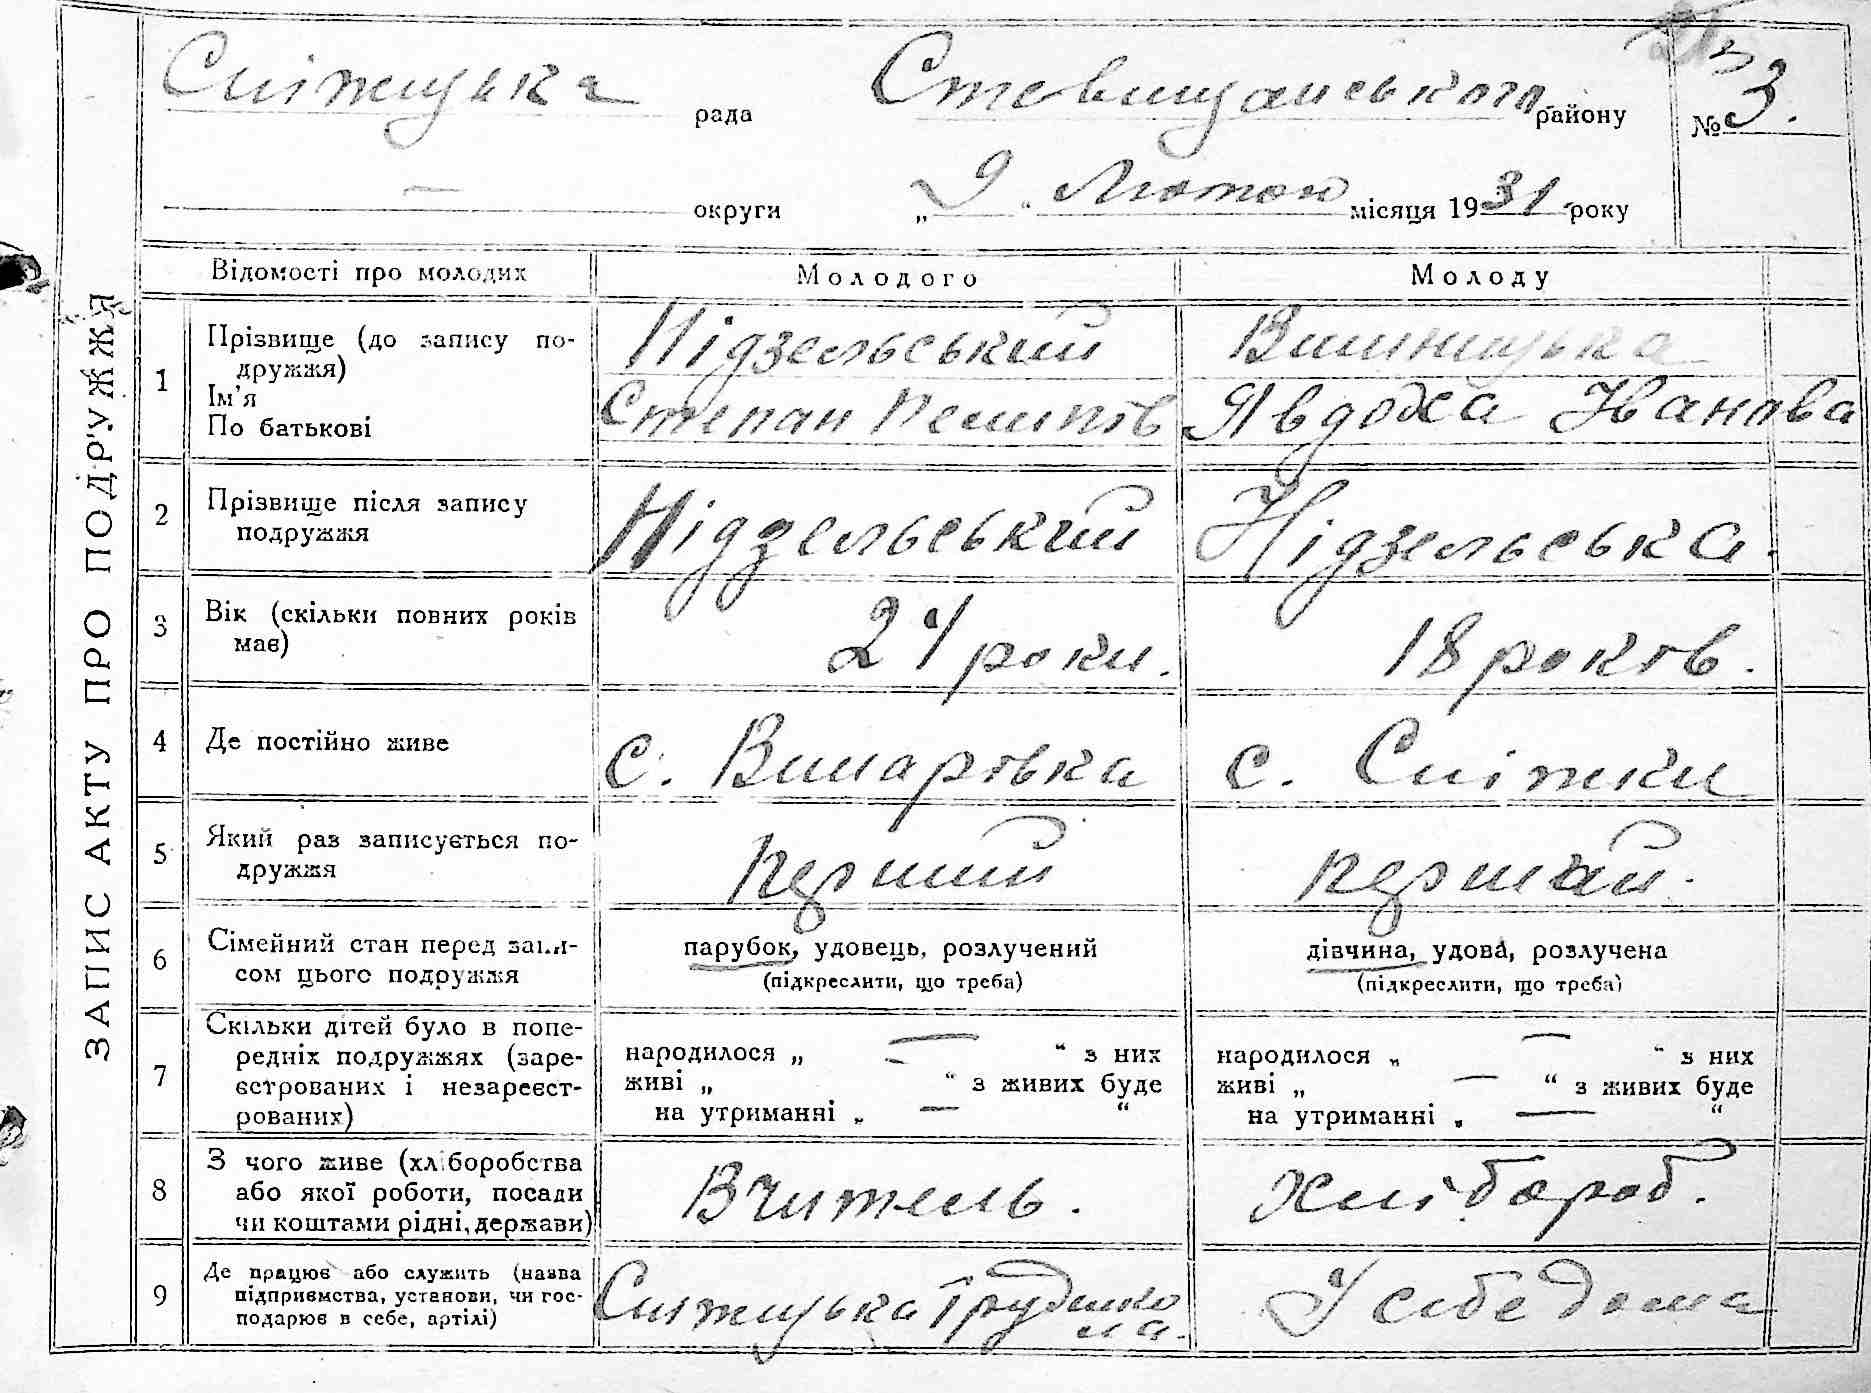 Сніжицька рада Стовищанського району № 3.
— округи „9“ Лютого місяця 1931 року
ЗАПИС АКТУ ПРО ПОДРУЖЖЯ
Відомості про молодих Молодого Молоду
1 Прізвище (до запису по-
дружжя)
Ім'я
По батькові
Нідзельський Вишницька
Степан Пелипів Явдоха Іванова
2 Прізвище після запису
подружжя
Нідзельський Нідзельська.
3 Вік (скільки повних років
має)
24 роки. 18 років.
4 Де постійно живе с. Винарівка с. Сніжки
5 Який раз записується по-
дружжя
перший перший.
6 Сімейний стан перед запи-
сом цього подружжя
парубок, удовець, розлучений
(підкреслити, що треба)
дівчина, удова, розлучена
(підкреслити, що треба)
7 Скільки дітей було в попе-
редніх подружжях (заре-
єстрованих і незареєст-
рованих)
народилося „ — “ з них
живі „ — “ з живих буде
на утриманні „ — “
народилося „ — “ з них
живі „ — “ з живих буде
на утриманні „ — “
8 З чого живе (хліборобства
або якої роботи, посади
чи коштами рідні, держави)
Вчитель. Хлібороб.
9 Де працює або служить (назва
підприємства, установи, чи гос-
подарює в себе, артілі)
Сніжицька Трудшко
ла.
У себе дома